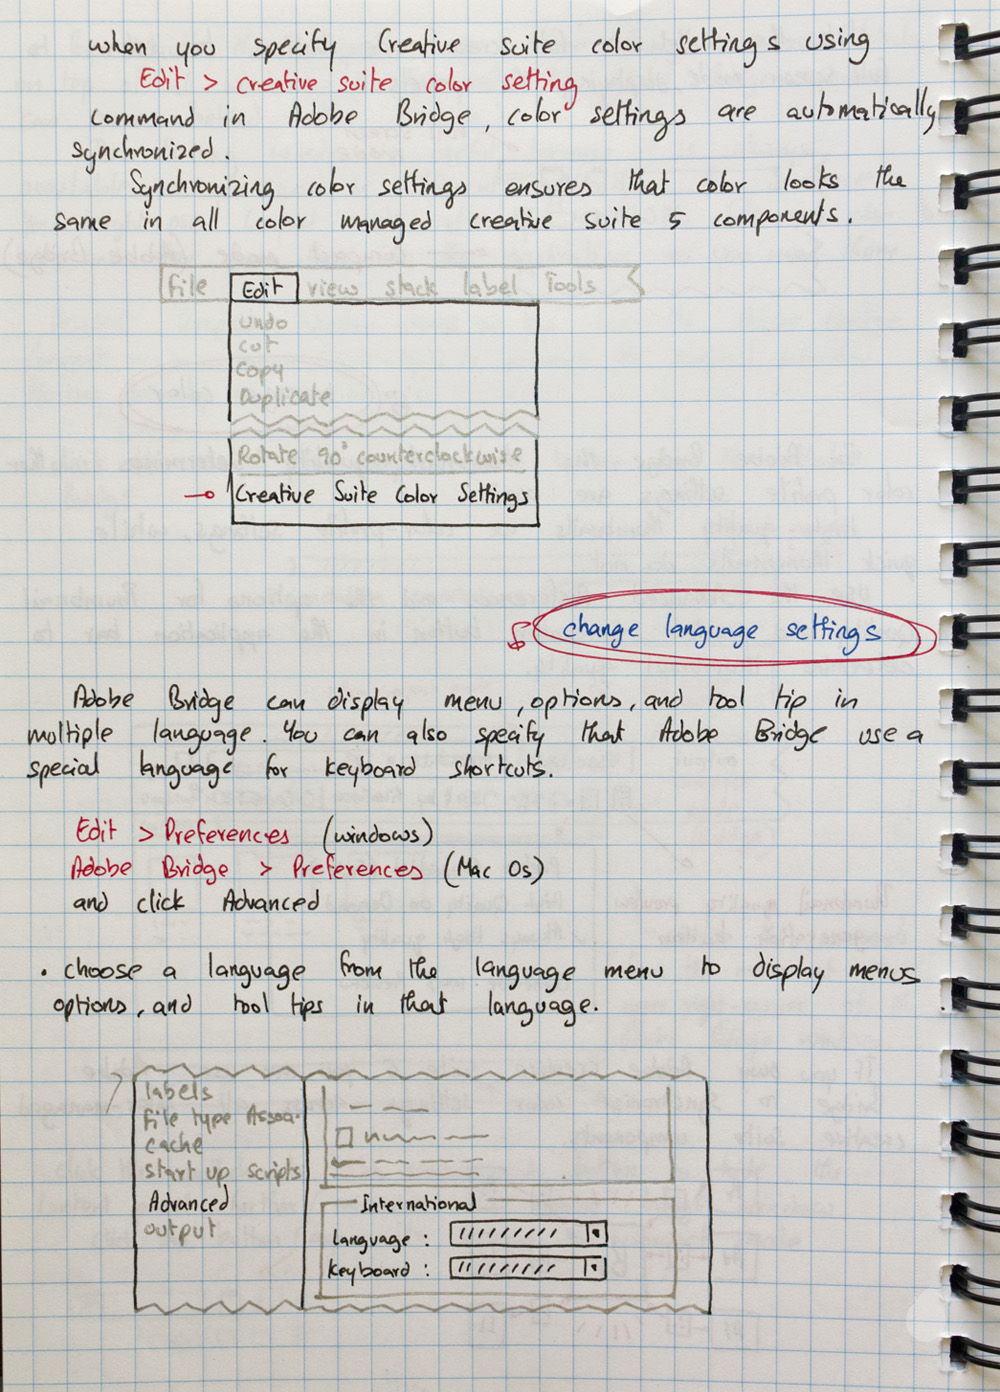 when you specify Creative suite color settings using
Edit > creative suite color setting
command in Adobe Bridge, color settings are automatically
synchronized.
Synchronizing color settings ensures that color looks the
same in all color managed creative suite 5 components.
File Edit view stack label Tools
undo
cut
copy
Duplicate
Rotate 90° counterclockwise
Creative Suite Color Settings
change language settings
Adobe Bridge can display menu, options, and tool tip in
multiple language. You can also specify that Adobe Bridge use a
special language for keyboard shortcuts.
Edit > Preferences (windows)
Adobe Bridge > Preferences (Mac Os)
and click Advanced
. choose a language from the language menu to display menus
options, and tool tips in that language.
labels
file type Assoc.
cache
start up scripts
Advanced
output
International
language :
keyboard :